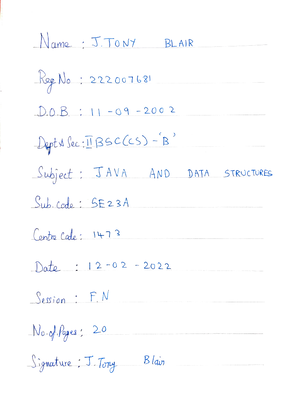 Name : J.TONY BLAIR
Reg No : 222007681
D.O.B : 11-09-2002
Dept & Sec : II BSC(CS) - 'B'
Subject : JAVA AND DATA STRUCTURES
Sub.code : SE23A
Centre Code : 1473
Date : 12-02-2022
Session : F.N
No.of Pages : 20
Signature : J.Tony Blair